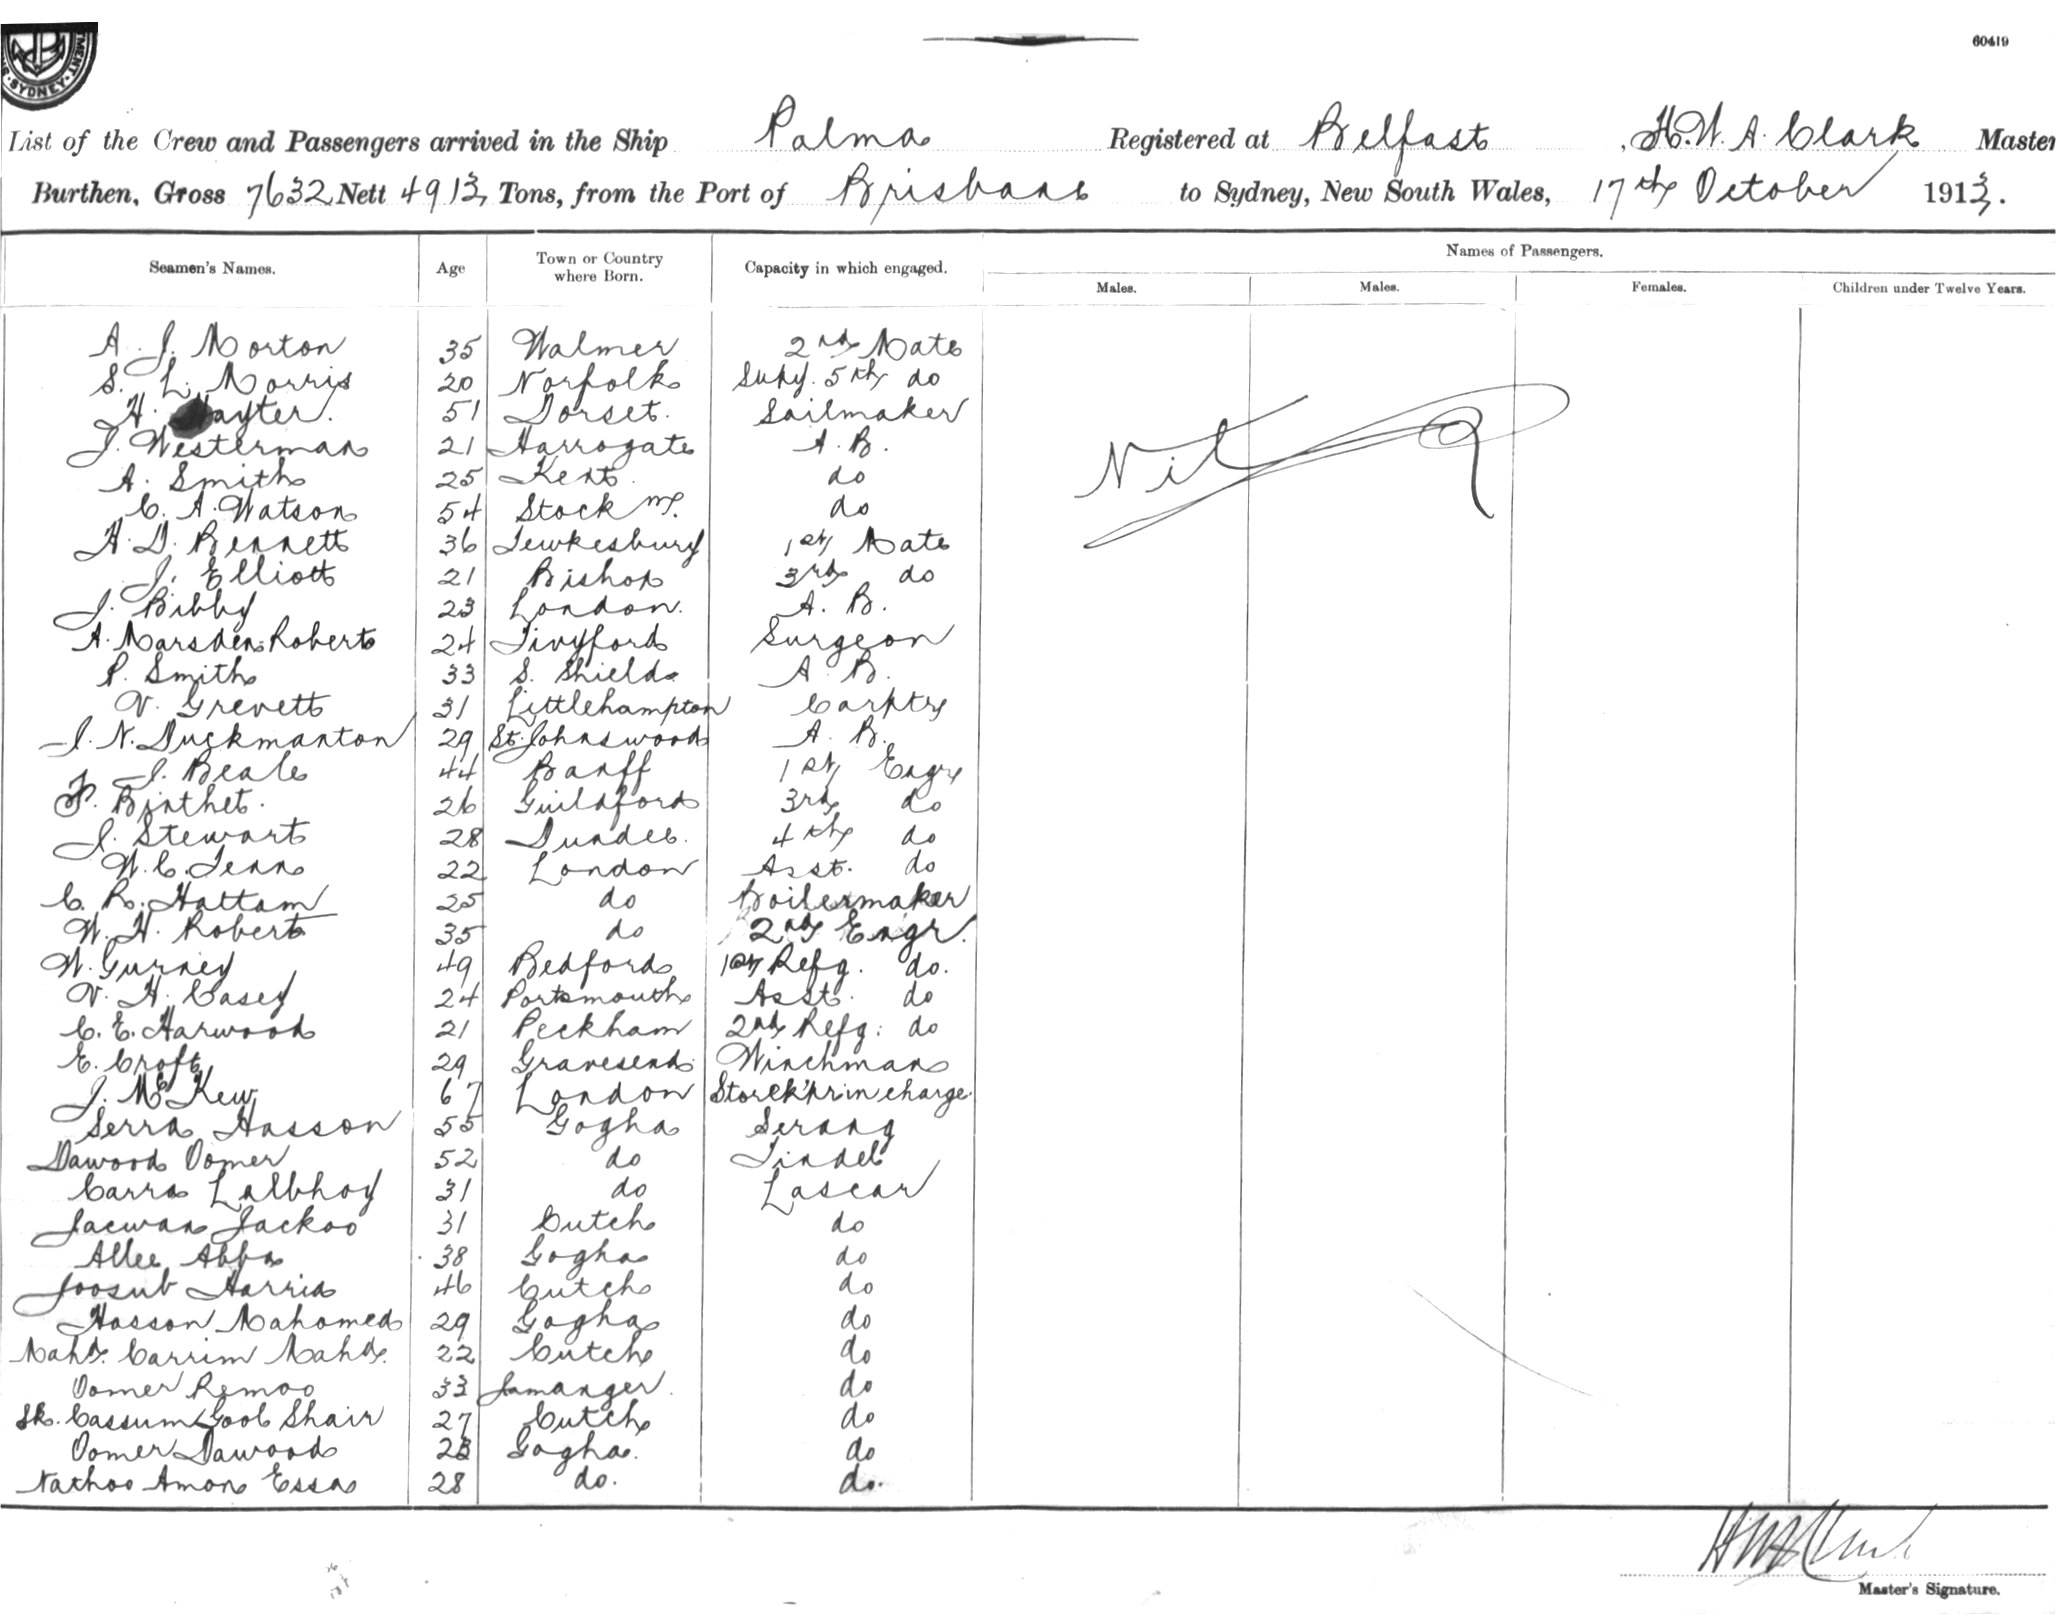 SYDNEY
60419
List of the Crew and Passengers arrived in the Ship Palma Registered at Belfast, H. W. A. Clark Master
Burthen, Gross 7632 Nett 4913 Tons, from the Port of Brisbane to Sydney, New South Wales, 17th October 1913.
Names of Passengers.
Seamen's Names. Age Town or Country where Born. Capacity in which engaged. Males. Males. Females. Children under Twelve Years.
A. J. Morton 35 Walmer 2nd Mate
S. L. Morris 20 Norfolk Supy. 5th do
H. Hayter. 51 Dorset. Sailmaker
J. Westerman 21 Harrogate A. B.
A. Smith 25 Kent. do
C. A. Watson 54 Stock m. do
H. D. Bennett 36 Tewkesbury 1st Mate
J. Elliott 21 Bishop 3rd do
J. Bibby 23 London. A. B.
A. Marsden Roberts 24 Tivyford Surgeon
P. Smith 33 S. Shields A. B.
V. Grevett 31 Littlehampton Carptr
J. N. Duckmanton 29 St. Johnswood A. B.
J. Beale 44 Banff 1st Engr
F. Binthet. 26 Guildford 3rd do
J. Stewart 28 Dundee. 4th do
W. C. Tenn 22 London Asst. do
C. R. Hattam 25 do Boilermaker
W. H. Roberts 35 do 2nd Engr.
W. Gurney 49 Bedford 1st Refg. do.
V. H. Casey 24 Portsmouth Asst. do
C. E. Harwood 21 Peckham 2nd Refg. do
E. Croft 29 Gravesend. Winchman
J. McKew 67 London Storek'pr in charge
Serra Hasson 55 Gogha Serang
Dawood Oomer 52 do Tindel
Carra Lalbhoy 31 do Lascar
Jaewan Jackoo 31 Cutch do
Allee Abba 38 Gogha do
Joosub Harria 46 Cutch do
Hasson Mahomed 29 Gogha do
Mahd. Carrim Mahd. 22 Cutch do
Oomer Remoo 33 Jamanger. do
Sk. Cassum Gool Shair 27 Cutch do
Oomer Dawood 23 Gogha. do
Nathoo Amon Essa 28 do. do.
Nil
Master's Signature.